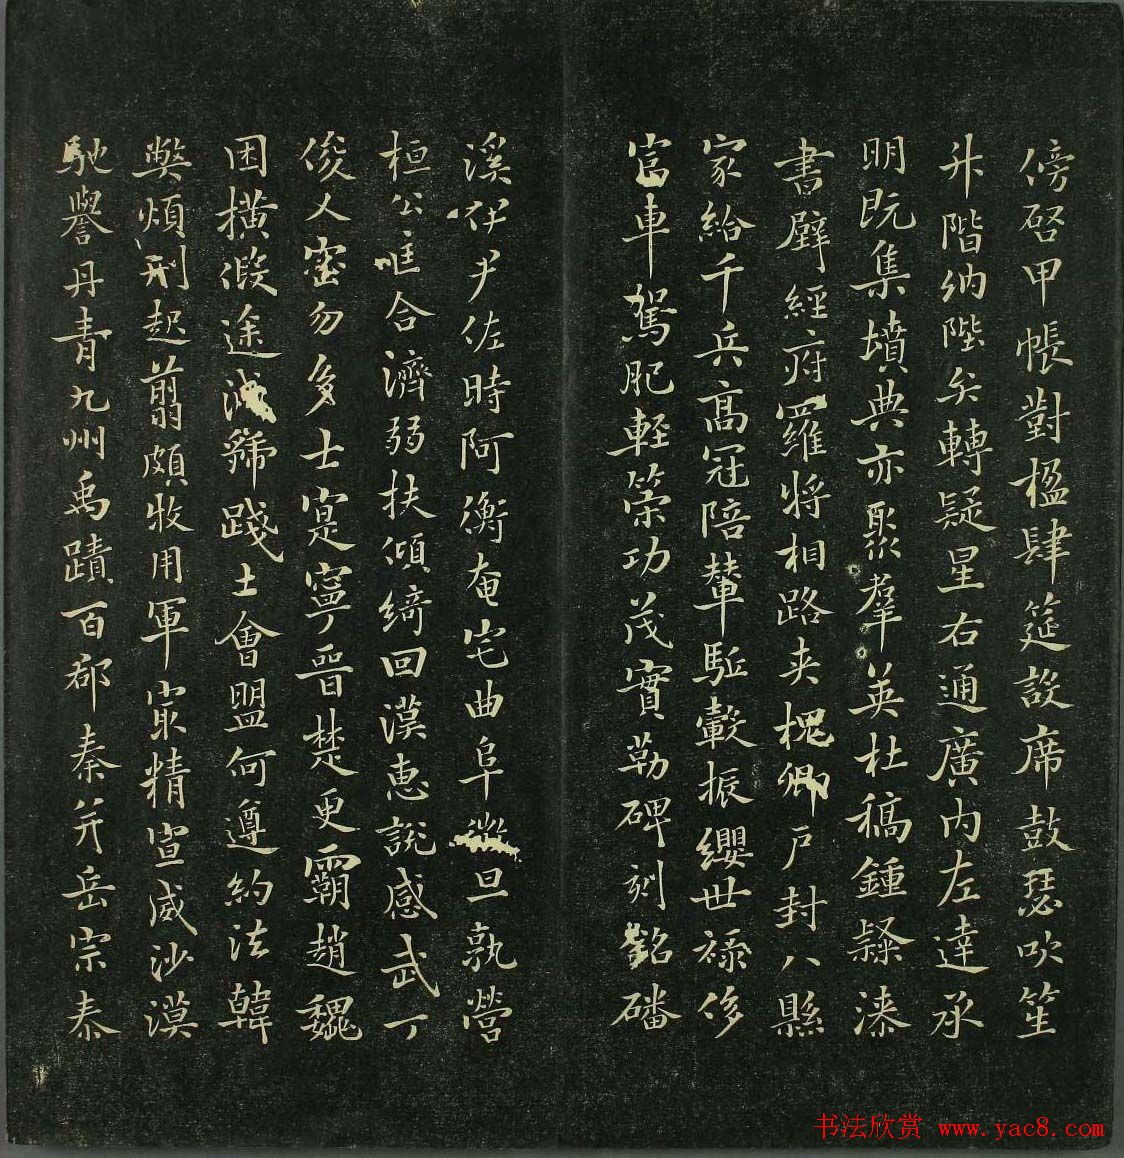 傍啓甲帳對楹肆筵設席鼓瑟吹笙
升階納陛矣轉疑星右通廣內左達承
明既集墳典亦聚羣英杜稿鍾隸漆
書壁經府羅將相路夾槐卿戶封八縣
家給千兵高冠陪輦駈轂振纓世祿侈
富車駕肥輕策功茂實勒碑刻銘磻
溪伊尹佐時阿衡奄宅曲阜微旦孰營
桓公匡合濟弱扶傾綺回漢惠說感武丁
俊人密勿多士寔寧晉楚更霸趙魏
困橫假途滅虢踐土會盟何遵約法韓
弊煩刑起翦頗牧用軍最精宣威沙漠
馳譽丹青九州禹蹟百郡秦并岳宗泰
书法欣赏 www.yac8.com